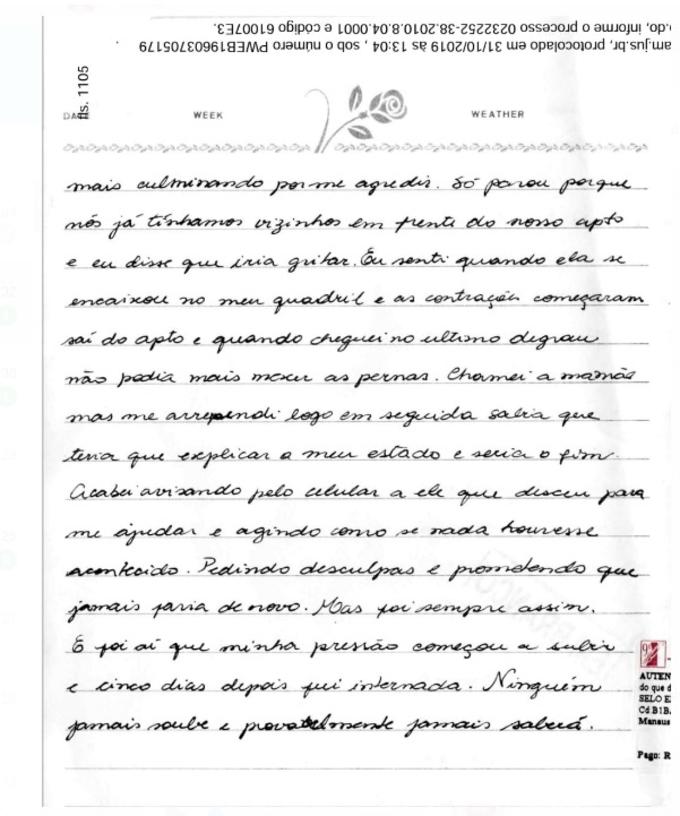 am.jus.br, protocolado em 31/10/2019 às 13:04 , sob o número PWEB19603705179
do, informe o processo 0232252-38.2010.8.04.0001 e código 61007E3.
fls. 1105
DA
WEEK
WEATHER
mais culminando por me agredir. Só parou porque
nós já tínhamos vizinhos em frente do nosso apto
e eu disse que iria gritar. Eu senti quando ela se
encaixou no meu quadril e as contrações começaram
saí do apto e quando cheguei no ultimo degrau
não podia mais mexer as pernas. Chamei a mamãe
mas me arrependi logo em seguida sabia que
teria que explicar a meu estado e seria o fim.
Acabei avisando pelo celular a ele que desceu para
me ajudar e agindo como se nada houvesse
acontecido. Pedindo desculpas e prometendo que
jamais faria de novo. Mas foi sempre assim.
E foi aí que minha pressão começou a subir
e cinco dias depois fui internada. Ninguém
jamais soube e provavelmente jamais saberá.
AUTEN
do que d
SELO E
Cd B1B.
Manaus
Pago: R